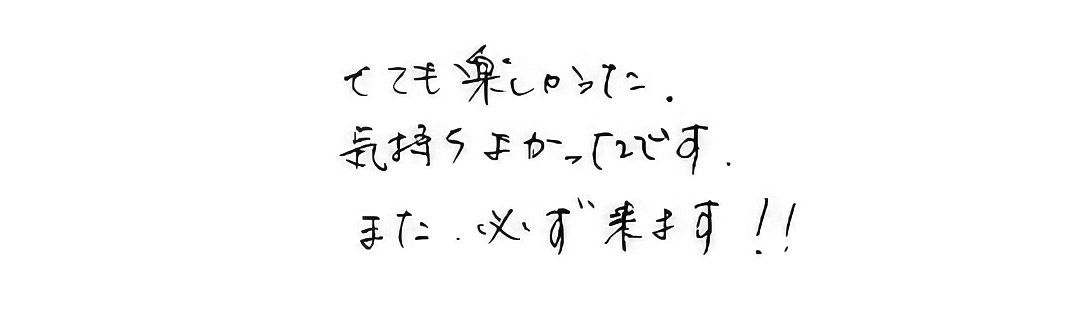 とても楽しかった.
気持ちよかったです.
また.必ず来ます!!